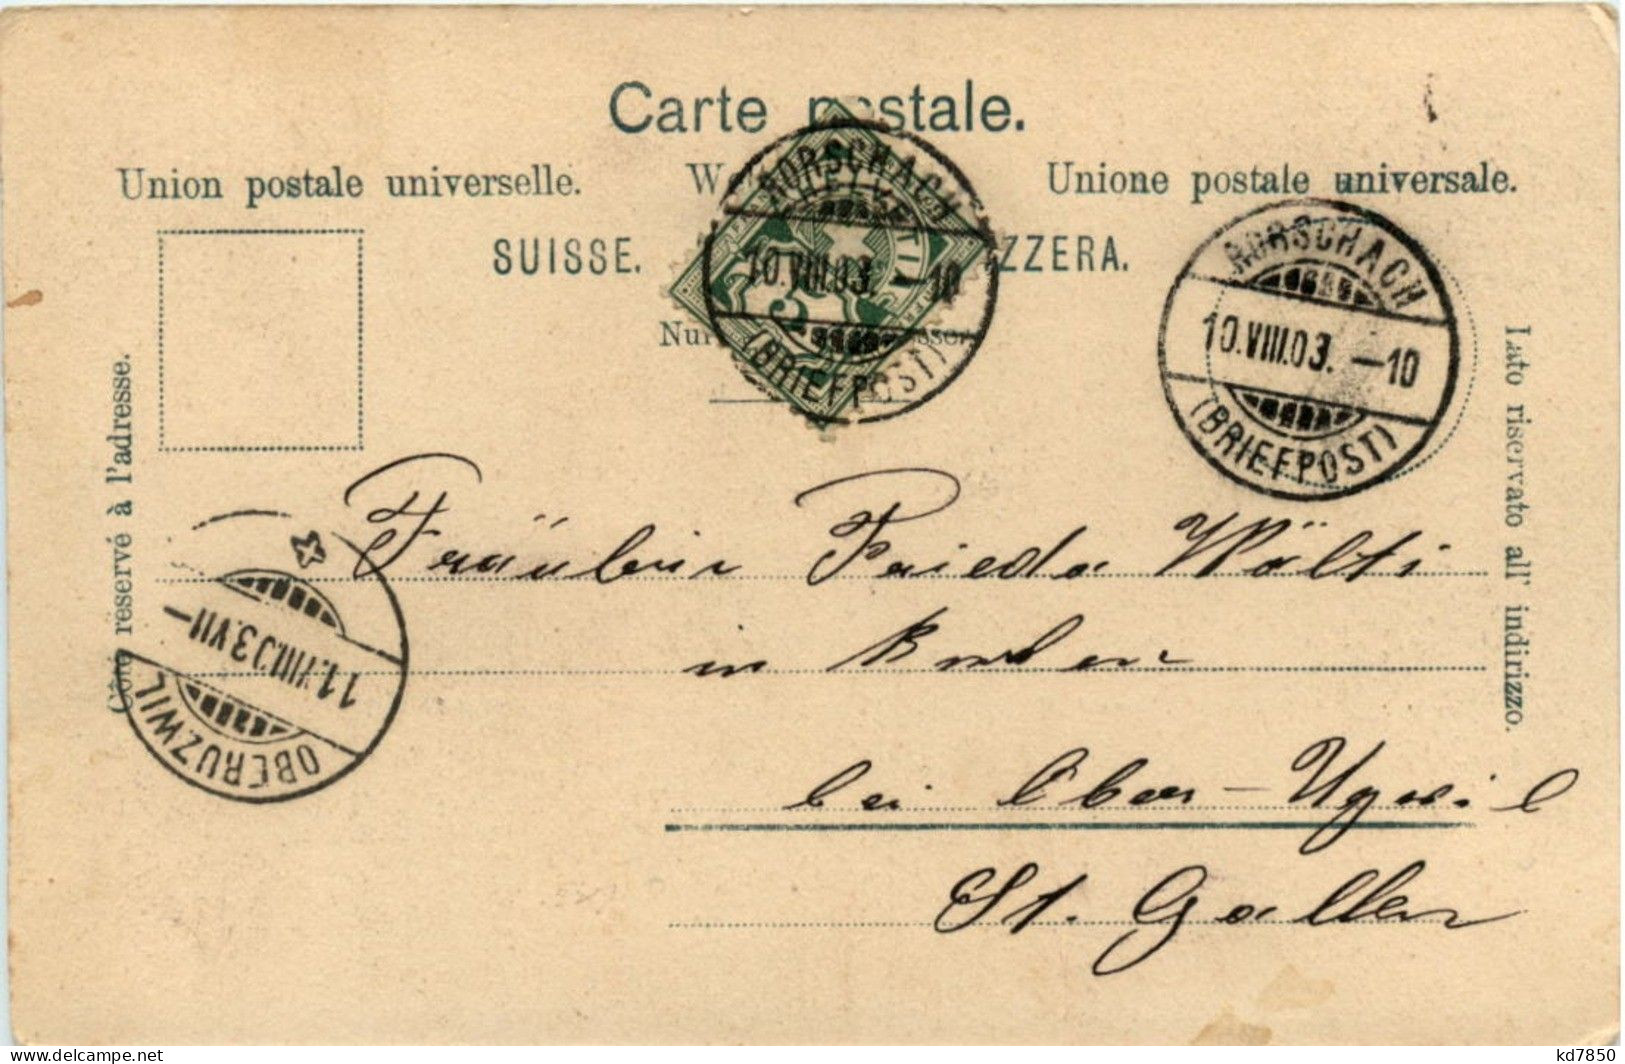 Carte postale.
Union postale universelle.
Unione postale universale.
SUISSE.
ZZERA.
Nur
RORSCHACH
10.VIII.03. –10
(BRIEFPOST)
HELVETIA
5
RORSCHACH
10.VIII.03. –10
(BRIEFPOST)
Côté reservé à l'adresse.
Lato riservato all' indirizzo.
Fräulein Frieda Wälti
in
bei Ober-Uzwil
St. Gallen
11.VIII.03.VII–
OBERUZWIL
kd7850